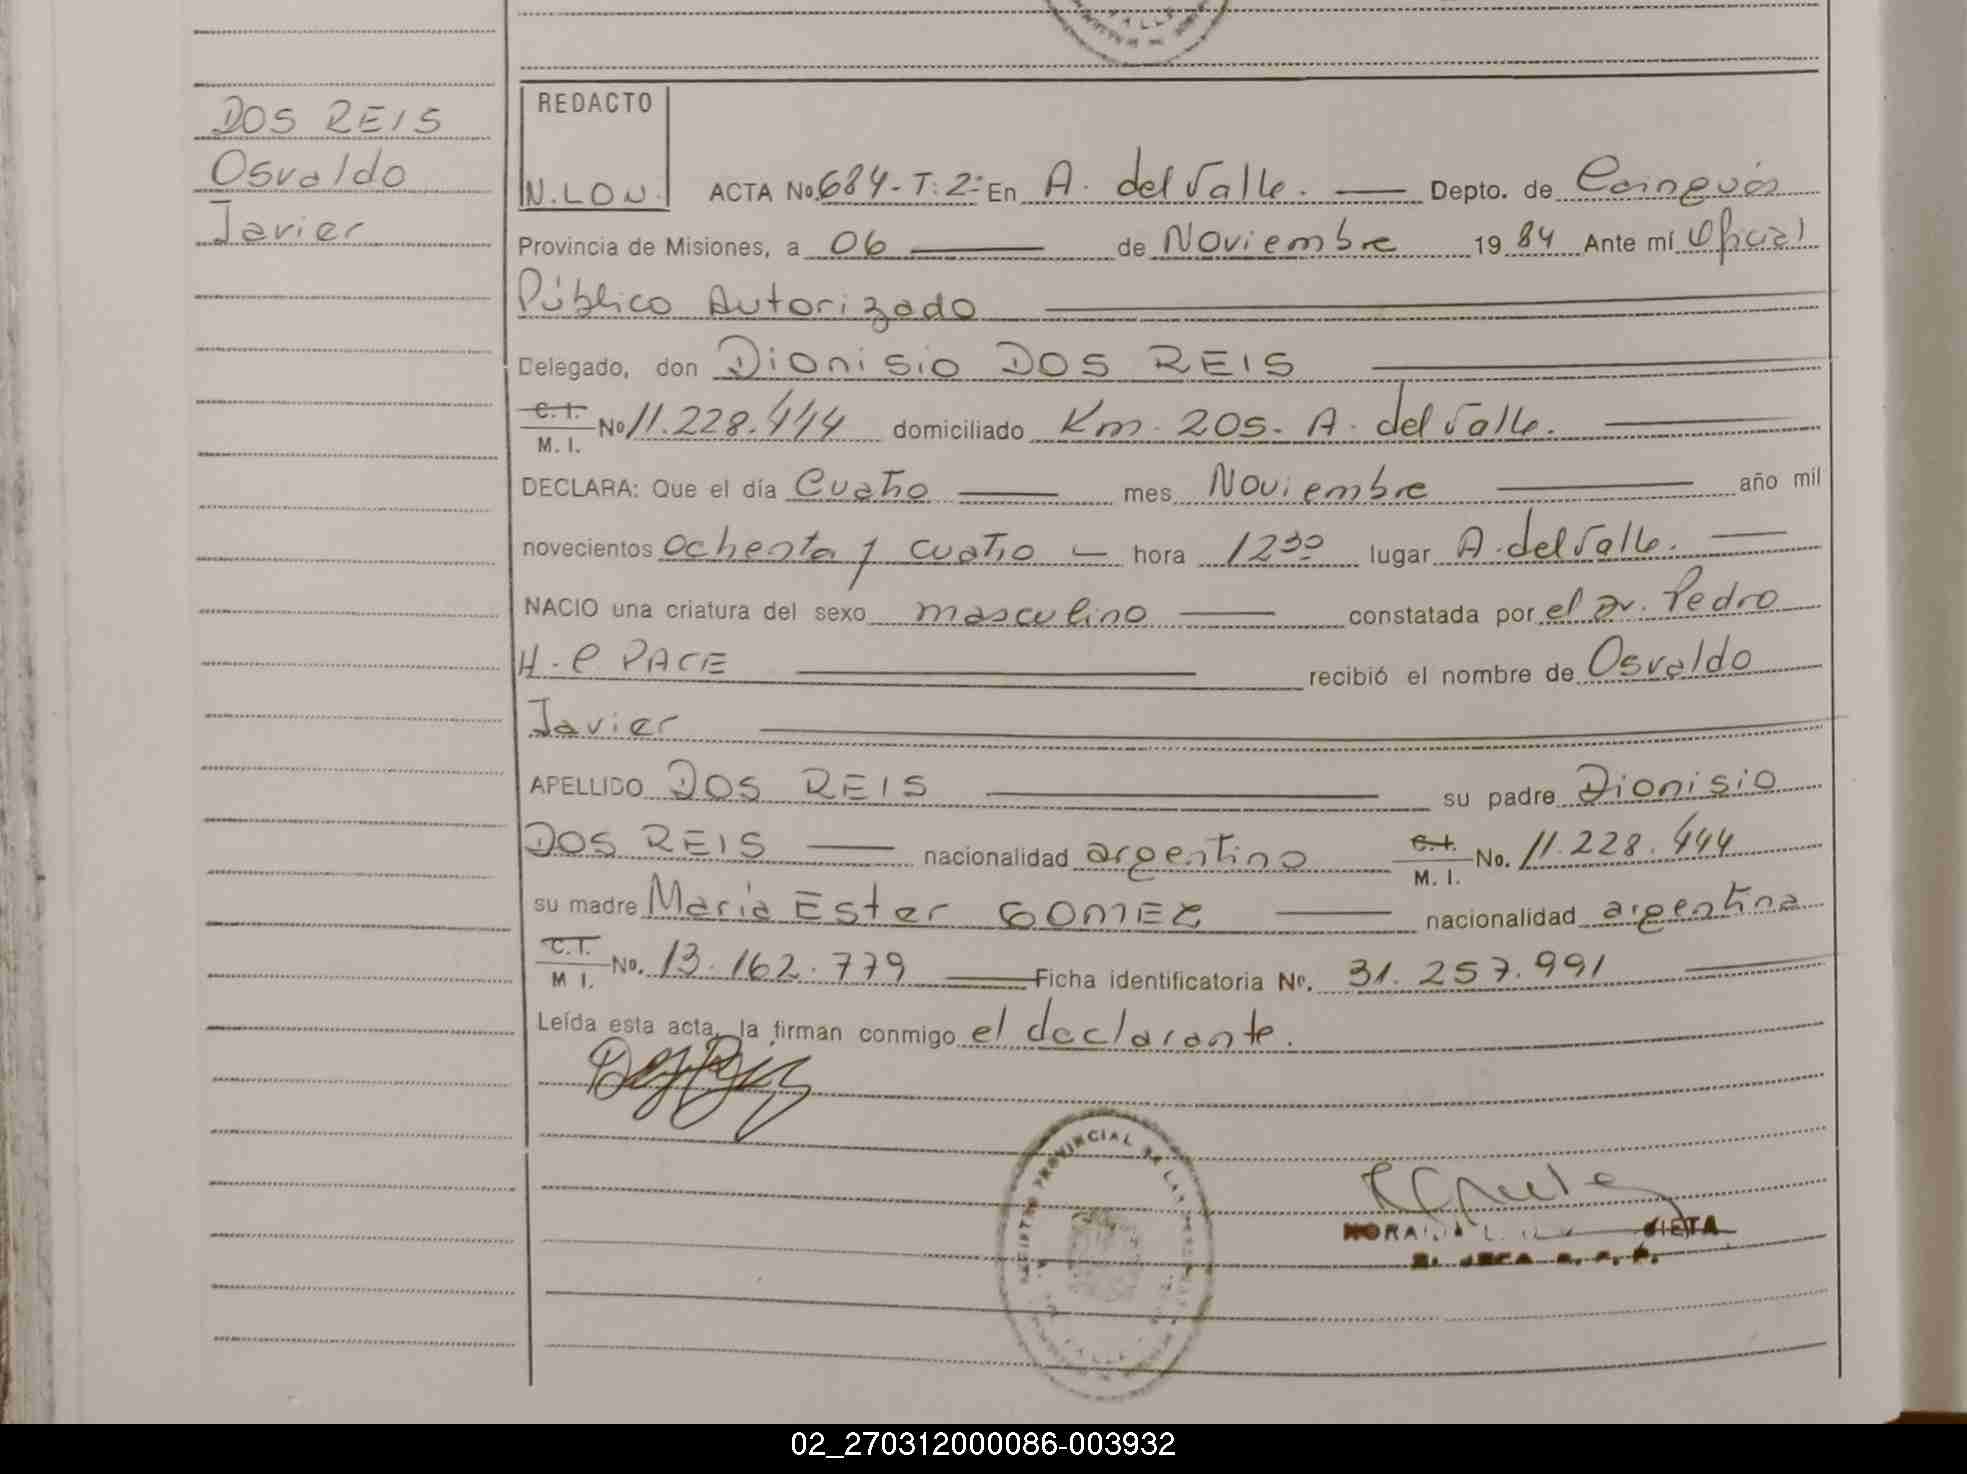 DOS REIS
Osvaldo
Javier
REDACTO
N.LOU.
ACTA No. 684-T:2- En A. del Valle. Depto. de Cainguás
Provincia de Misiones, a 06 de Noviembre 19 84 Ante mí Oficial
Público Autorizado
Delegado, don Dionisio DOS REIS
C.I. M.I. No 11.228.444 domiciliado Km. 205. A. del Valle.
DECLARA: Que el día Cuatro mes Noviembre año mil
novecientos ochenta y cuatro hora 12 30 lugar A. del Valle.
NACIO una criatura del sexo masculino constatada por el Dr. Pedro
H. C PACE recibió el nombre de Osvaldo
Javier
APELLIDO DOS REIS su padre Dionisio
DOS REIS nacionalidad argentino C.I. M.I. No. 11.228.444
su madre María Ester GOMEZ nacionalidad argentina
C.I. M I. No. 13.162.779 Ficha identificatoria Nº. 31.257.991
Leída esta acta, la firman conmigo el declarante.
PROVINCIAL DE LAS
02_270312000086-003932